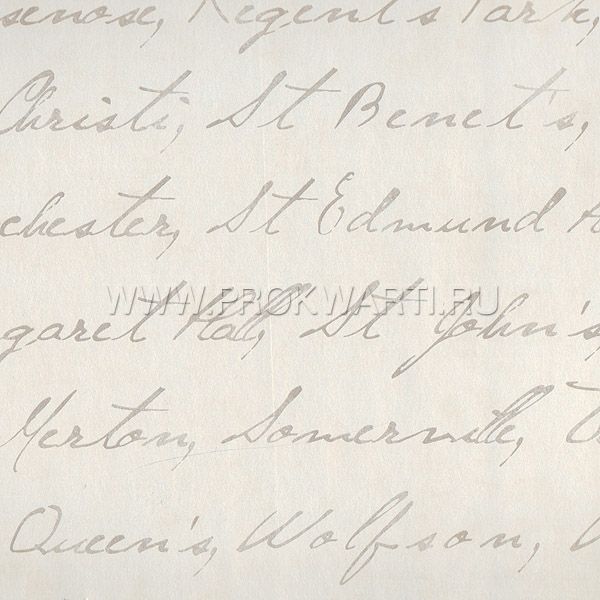 senose, Regent's Park,
Christi, St Benet's,
chester, St Edmund
WWW.PROKWARTI.RU
garet Hall, St John's,
Merton, Somerville,
Queen's, Wolfson,